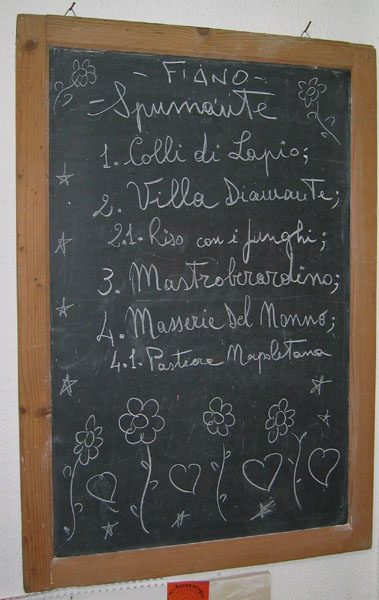 - FIANO -
- Spumante
1. Colli di Lapio;
2. Villa Diamante;
2.1. Riso con i funghi;
3. Mastroberardino;
4. Masserie Del Nonno;
4.1. Pastiera Napoletana